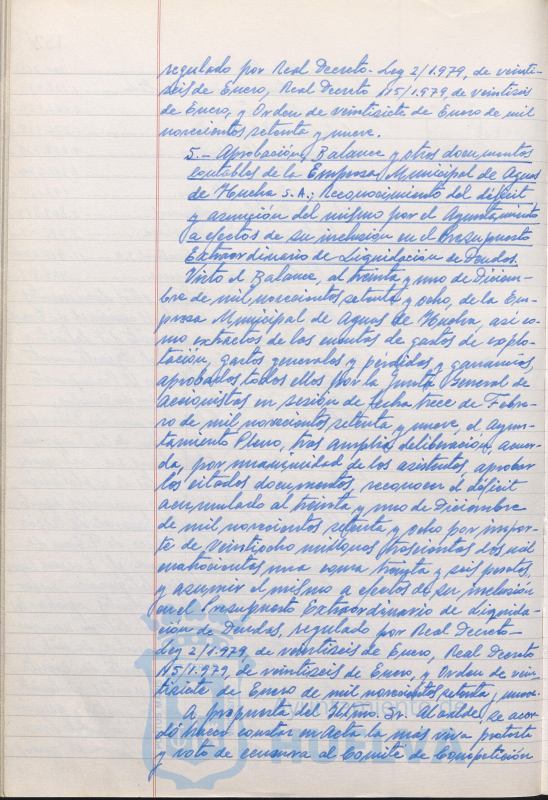 regulado por Real Decreto-Ley 2/1.979, de veinti-
seis de Enero, Real Decreto 115/1.979, de veintiseis
de Enero, y Orden de veintisiete de Enero de mil
novecientos setenta y nueve.
5.- Aprobación, Balance y otros documentos
contables de la Empresa Municipal de Aguas
de Huelva S.A.; Reconocimiento del déficit
y asunción del mismo por el Ayuntamiento
a efectos de su inclusión en el Presupuesto
Extraordinario de Liquidación de Deudas.
Visto el Balance, al treinta y uno de Diciem-
bre de mil novecientos setenta y ocho, de la Em-
presa Municipal de Aguas de Huelva, así co-
mo extractos de las cuentas de gastos de explo-
tación, gastos generales y pérdidas y ganancias,
aprobados todos ellos por la Junta General de
accionistas en sesión de fecha trece de Febre-
ro de mil novecientos setenta y nueve, el Ayun-
tamiento Pleno, tras amplia deliberación, acuer-
da, por unanimidad de los asistentes, aprobar
los citados documentos, reconocer el déficit
acumulado al treinta y uno de Diciembre
de mil novecientos setenta y ocho por impor-
te de veintiocho millones trescientas dos mil
cuatrocientas una coma treinta y seis pesetas,
y asumir el mismo a efectos de su inclusión
en el Presupuesto Extraordinario de Liquida-
ción de Deudas, regulado por Real Decreto-
Ley 2/1.979, de veintiseis de Enero, Real Decreto
115/1.979, de veintiseis de Enero, y Orden de vein-
tisiete de Enero de mil novecientos setenta y nueve.
A propuesta del Iltmo. Sr. Alcalde, se acor-
dó hacer constar en Acta la más viva protesta
y voto de censura al Comité de Competición
Ayuntamiento de
HUELVA